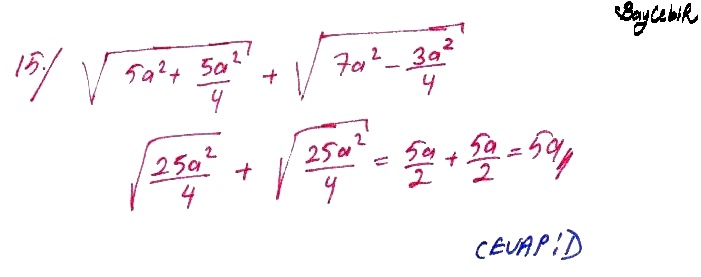 BayCebiR
15./ √(5a² + 5a²/4) + √(7a² - 3a²/4)
√(25a²/4) + √(25a²/4) = 5a/2 + 5a/2 = 5a//
CEVAP:D